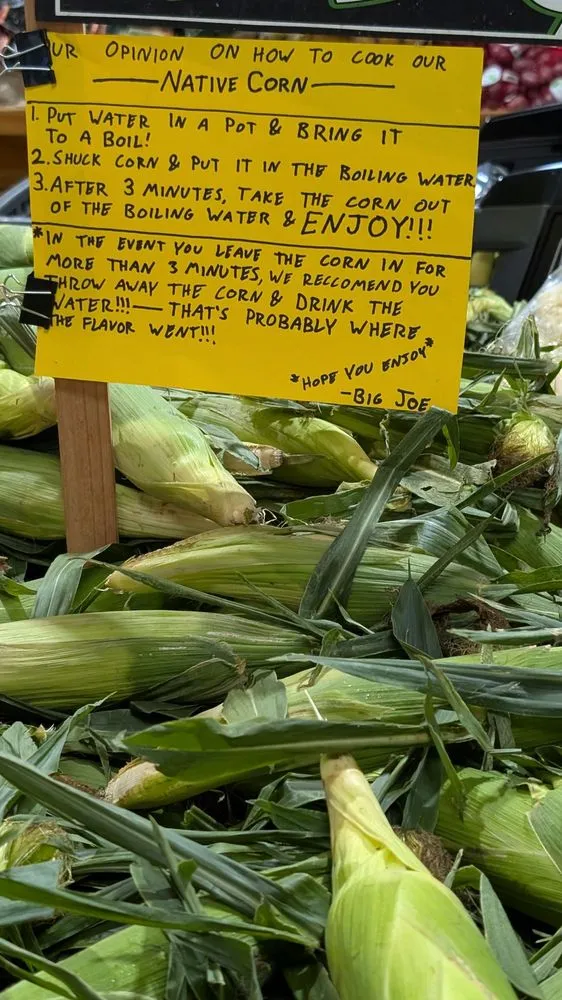 UR OPINION ON HOW TO COOK OUR
NATIVE CORN
1. PUT WATER IN A POT & BRING IT
TO A BOIL!
2. SHUCK CORN & PUT IT IN THE BOILING WATER
3. AFTER 3 MINUTES, TAKE THE CORN OUT
OF THE BOILING WATER & ENJOY!!!
*IN THE EVENT YOU LEAVE THE CORN IN FOR
MORE THAN 3 MINUTES, WE RECCOMEND YOU
THROW AWAY THE CORN & DRINK THE
WATER!!! — THAT'S PROBABLY WHERE
THE FLAVOR WENT!!!
*HOPE YOU ENJOY*
-BIG JOE